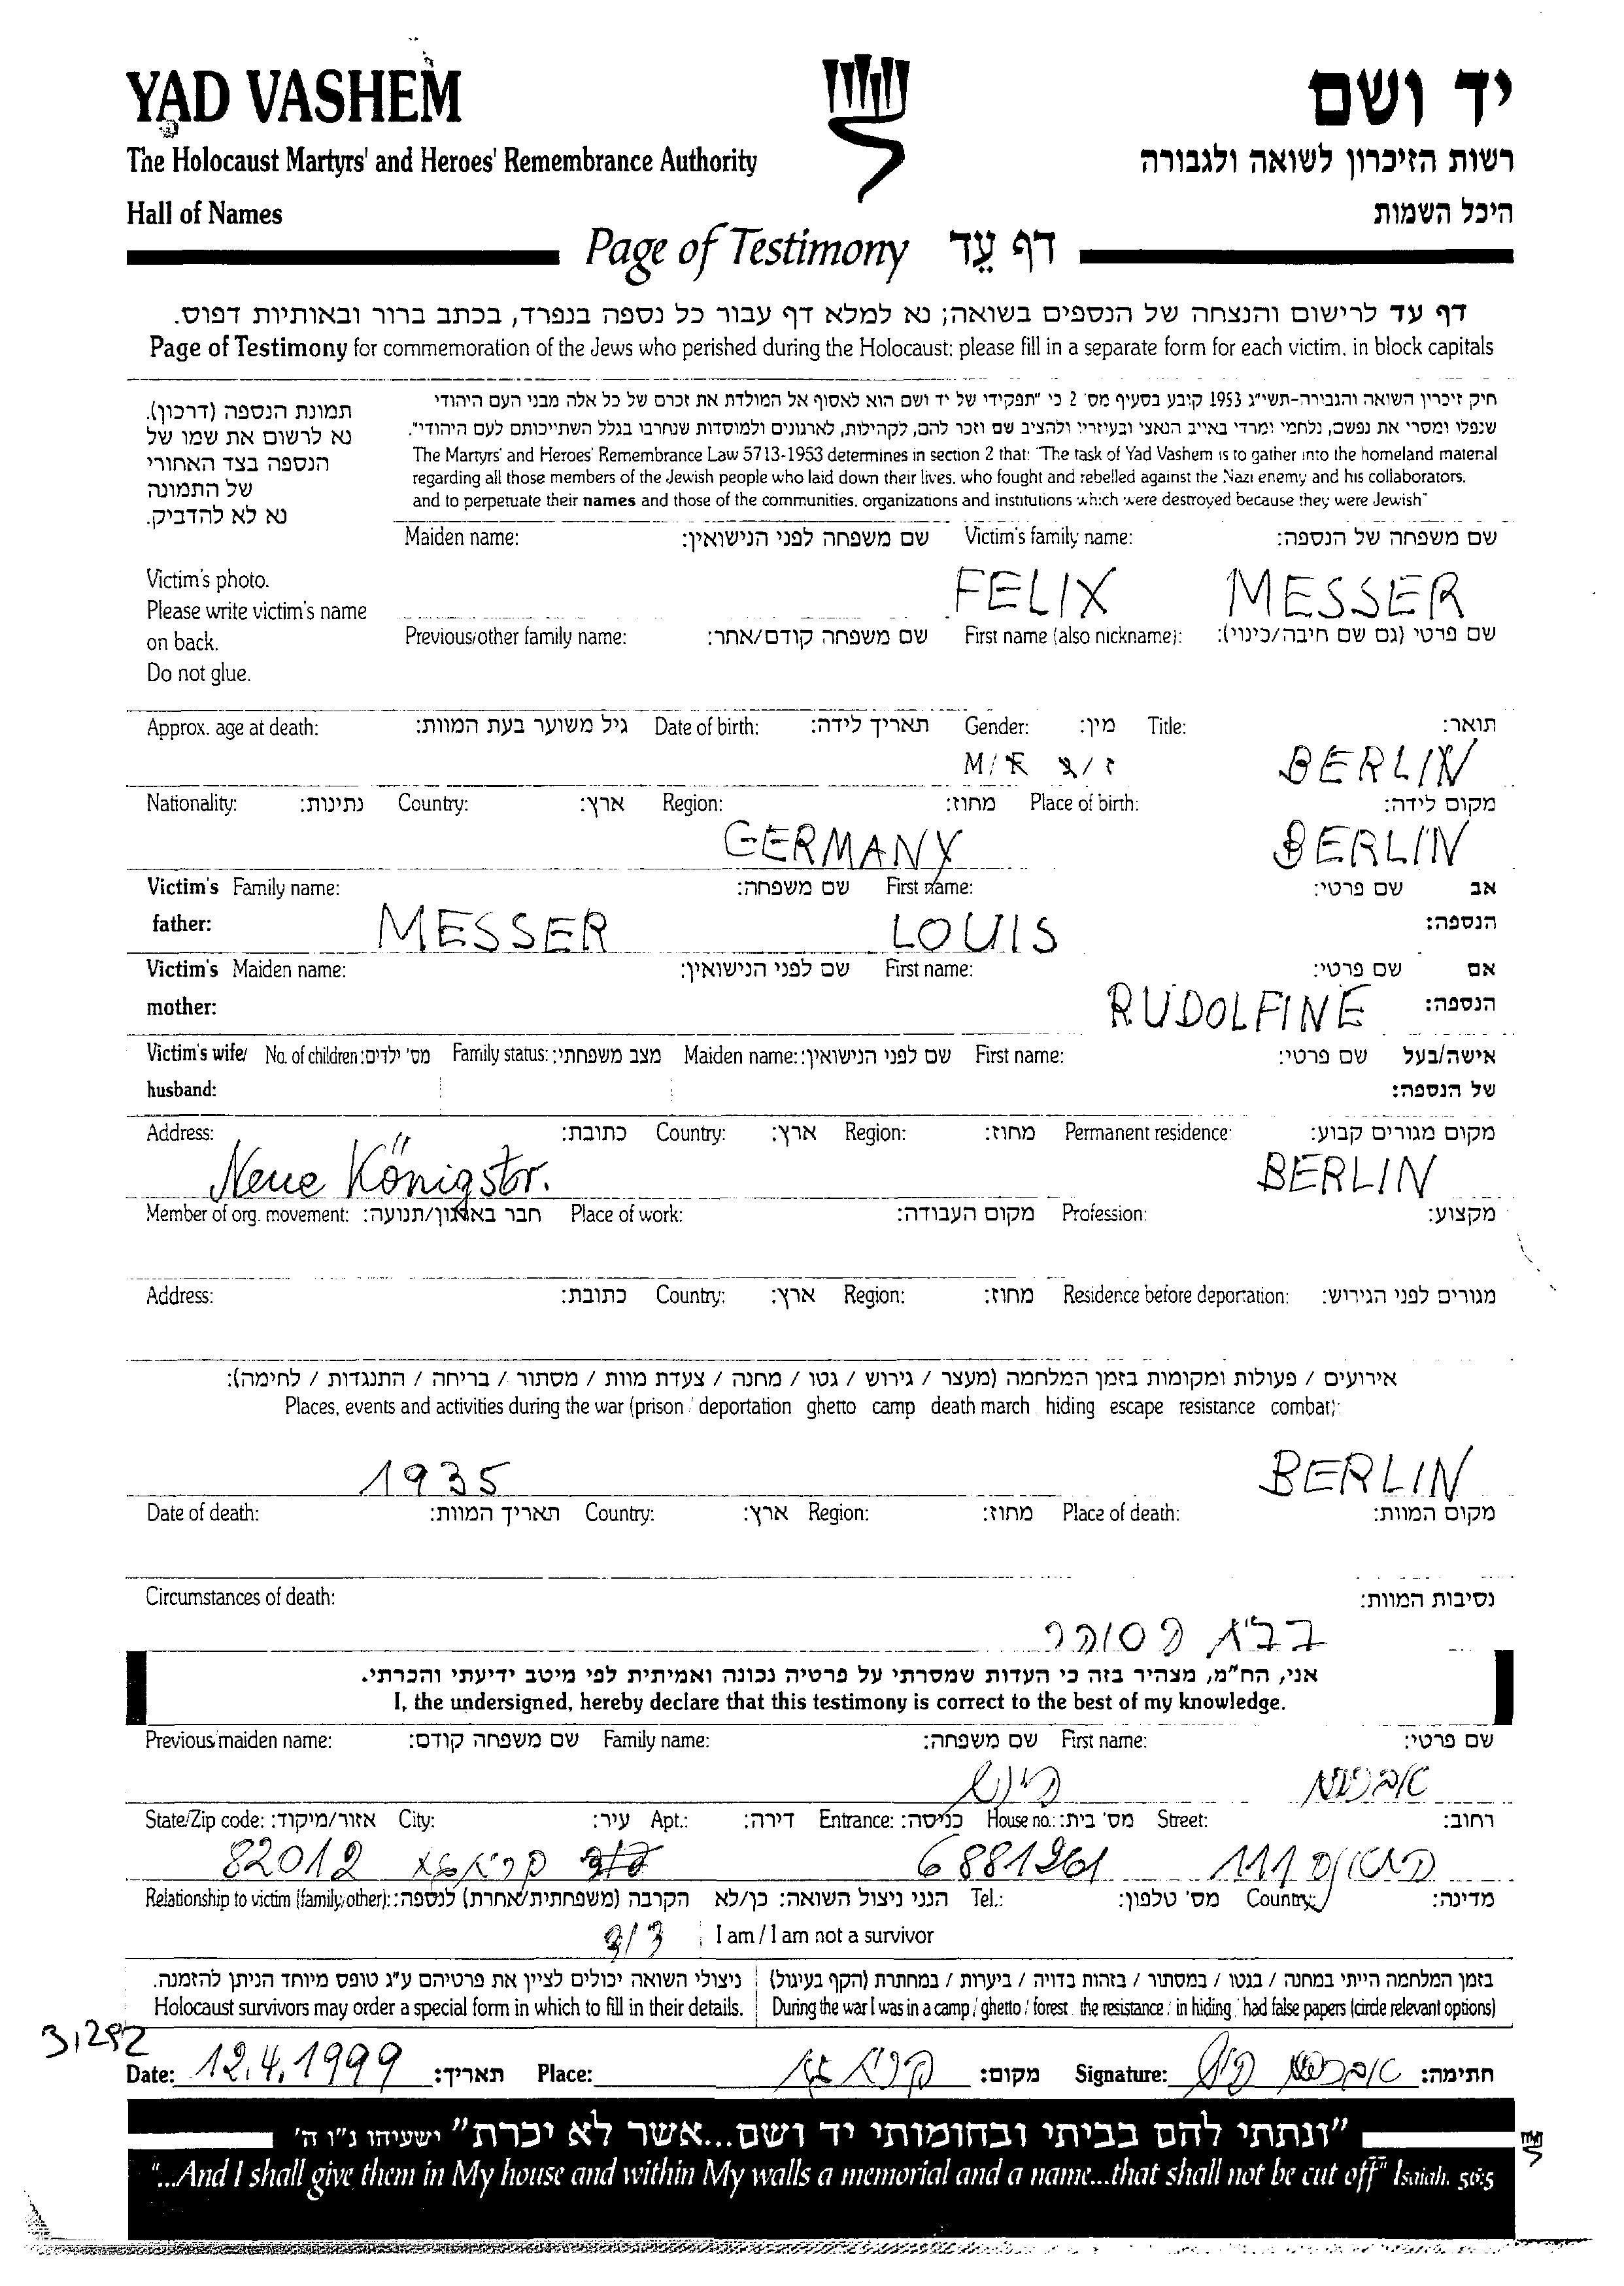 YAD VASHEM
יד ושם
The Holocaust Martyrs' and Heroes' Remembrance Authority
רשות הזיכרון לשואה ולגבורה
Hall of Names
היכל השמות
Page of Testimony דף עֵד
דף עד לרישום והנצחה של הנספים בשואה; נא למלא דף עבור כל נספה בנפרד, בכתב ברור ובאותיות דפוס.
Page of Testimony for commemoration of the Jews who perished during the Holocaust; please fill in a separate form for each victim, in block capitals
תמונת הנספה (דרכון).
נא לרשום את שמו של
הנספה בצד האחורי
של התמונה
נא לא להדביק.
Victim's photo.
Please write victim's name
on back.
Do not glue.
חוק זיכרון השואה והגבורה-תשי"ג 1953 קובע בסעיף מס' 2 כי "תפקידו של יד ושם הוא לאסוף אל המולדת את זכרם של כל אלה מבני העם היהודי
שנפלו ומסרו את נפשם, נלחמו ומרדו באויב הנאצי ובעוזריו ולהציב שם וזכר להם, לקהילות, לארגונים ולמוסדות שנחרבו בגלל השתייכותם לעם היהודי".
The Martyrs' and Heroes' Remembrance Law 5713-1953 determines in section 2 that: "The task of Yad Vashem is to gather into the homeland material
regarding all those members of the Jewish people who laid down their lives, who fought and rebelled against the Nazi enemy and his collaborators,
and to perpetuate their names and those of the communities, organizations and institutions which were destroyed because they were Jewish"
Maiden name: שם משפחה לפני הנישואין: Victim's family name: שם משפחה של הנספה:
FELIX MESSER
Previous/other family name: שם משפחה קודם/אחר: First name (also nickname): שם פרטי (גם שם חיבה/כינוי):
Approx. age at death: גיל משוער בעת המוות: Date of birth: תאריך לידה: Gender: מין: Title: תואר:
M / F ז / נ BERLIN
Nationality: נתינות: Country: ארץ: Region: מחוז: Place of birth: מקום לידה:
GERMANY BERLIN
Victim's Family name: שם משפחה: First name: שם פרטי: אב
father: MESSER LOUIS הנספה:
Victim's Maiden name: שם לפני הנישואין: First name: שם פרטי: אם
mother: RUDOLFINE הנספה:
Victim's wife/ No. of children: מס' ילדים: Family status: מצב משפחתי: Maiden name: שם לפני הנישואין: First name: שם פרטי: אישה/בעל
husband: של הנספה:
Address: כתובת: Country: ארץ: Region: מחוז: Permanent residence: מקום מגורים קבוע:
Neue Königstr. BERLIN
Member of org. movement: חבר בארגון/תנועה: Place of work: מקום העבודה: Profession: מקצוע:
Address: כתובת: Country: ארץ: Region: מחוז: Residence before deportation: מגורים לפני הגירוש:
אירועים / פעולות ומקומות בזמן המלחמה (מעצר / גירוש / גטו / מחנה / צעדת מוות / מסתור / בריחה / התנגדות / לחימה):
Places, events and activities during the war (prison / deportation ghetto camp death march hiding escape resistance combat):
1935 BERLIN
Date of death: תאריך המוות: Country: ארץ: Region: מחוז: Place of death: מקום המוות:
Circumstances of death: נסיבות המוות:
בבית הסוהר
אני, הח"מ, מצהיר בזה כי העדות שמסרתי על פרטיה נכונה ואמיתית לפי מיטב ידיעתי והכרתי.
I, the undersigned, hereby declare that this testimony is correct to the best of my knowledge.
Previous/maiden name: שם משפחה קודם: Family name: שם משפחה: First name: שם פרטי:
State/Zip code: אזור/מיקוד: City: עיר: Apt.: דירה: Entrance: כניסה: House no.: מס' בית: Street: רחוב:
82012 קרית גת 6881261 111
Relationship to victim (family/other): הקרבה (משפחתית/אחרת) לנספה: הנני ניצול השואה: כן/לא Tel.: מס' טלפון: Country: מדינה:
I am / I am not a survivor
ניצולי השואה יכולים לציין את פרטיהם ע"ג טופס מיוחד הניתן להזמנה.
בזמן המלחמה הייתי במחנה / בגטו / במסתור / בזהות בדויה / ביערות / במחתרת (הקף בעיגול)
Holocaust survivors may order a special form in which to fill in their details.
During the war I was in a camp / ghetto / forest the resistance / in hiding had false papers (circle relevant options)
31292
Date: 12.4.1999 תאריך: Place: קרית גת מקום: Signature: חתימה:
"ונתתי להם בביתי ובחומותי יד ושם...אשר לא יכרת" ישעיהו נ"ו ה'
"...And I shall give them in My house and within My walls a memorial and a name...that shall not be cut off" Isaiah, 56:5